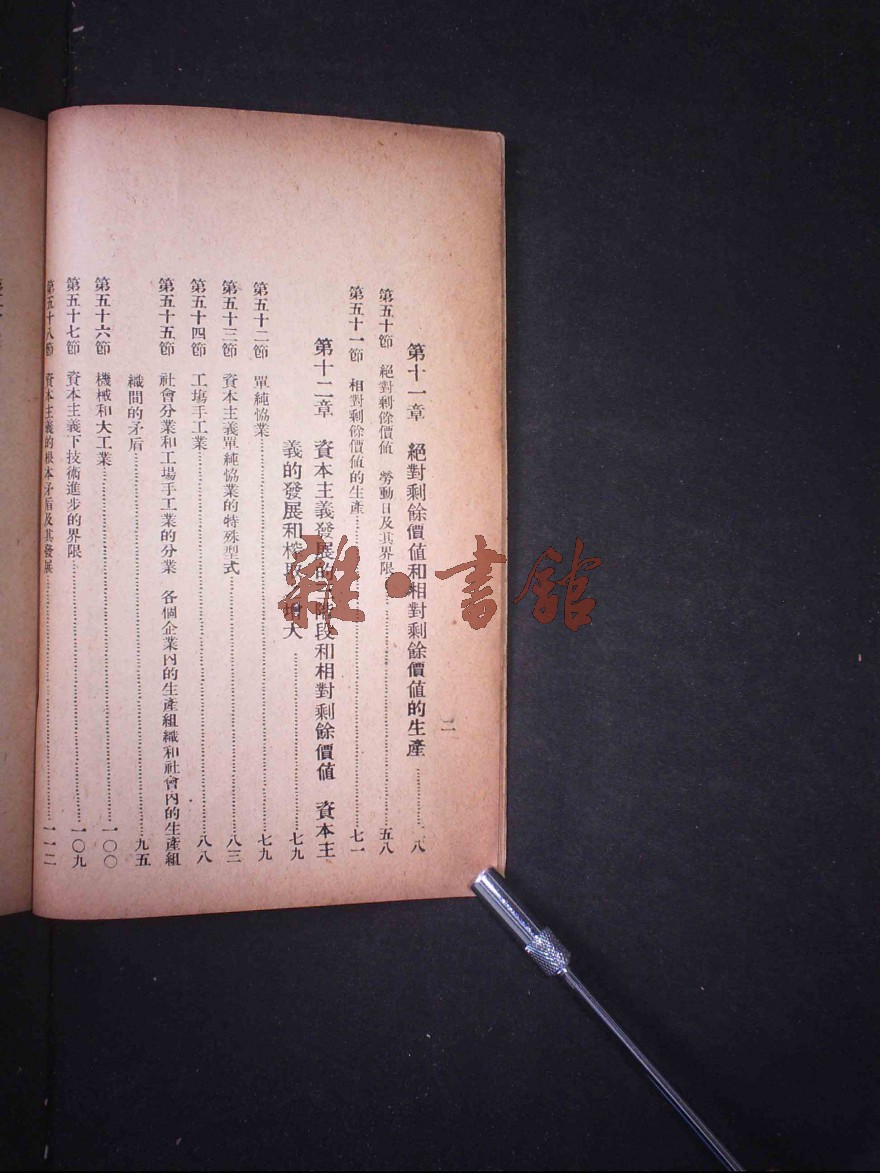 二
第十一章　絕對剩餘價值和相對剩餘價值的生產……八
第五十節　絕對剩餘價值　勞動日及其界限……五八
第五十一節　相對剩餘價值的生產……七一
第十二章　資本主義發展的三階段和相對剩餘價值　資本主
義的發展和榨取 增大……七九
第五十二節　單純恊業……七九
第五十三節　資本主義單純恊業的特殊型式……八三
第五十四節　工塲手工業……八八
第五十五節　社會分業和工場手工業的分業　各個企業內的生產組織和社會內的生產組
織間的矛盾……九五
第五十六節　機械和大工業……一〇〇
第五十七節　資本主義下技術進步的界限……一〇九
第五十八節　資本主義的根本矛盾及其發展……一一二
雜·書館